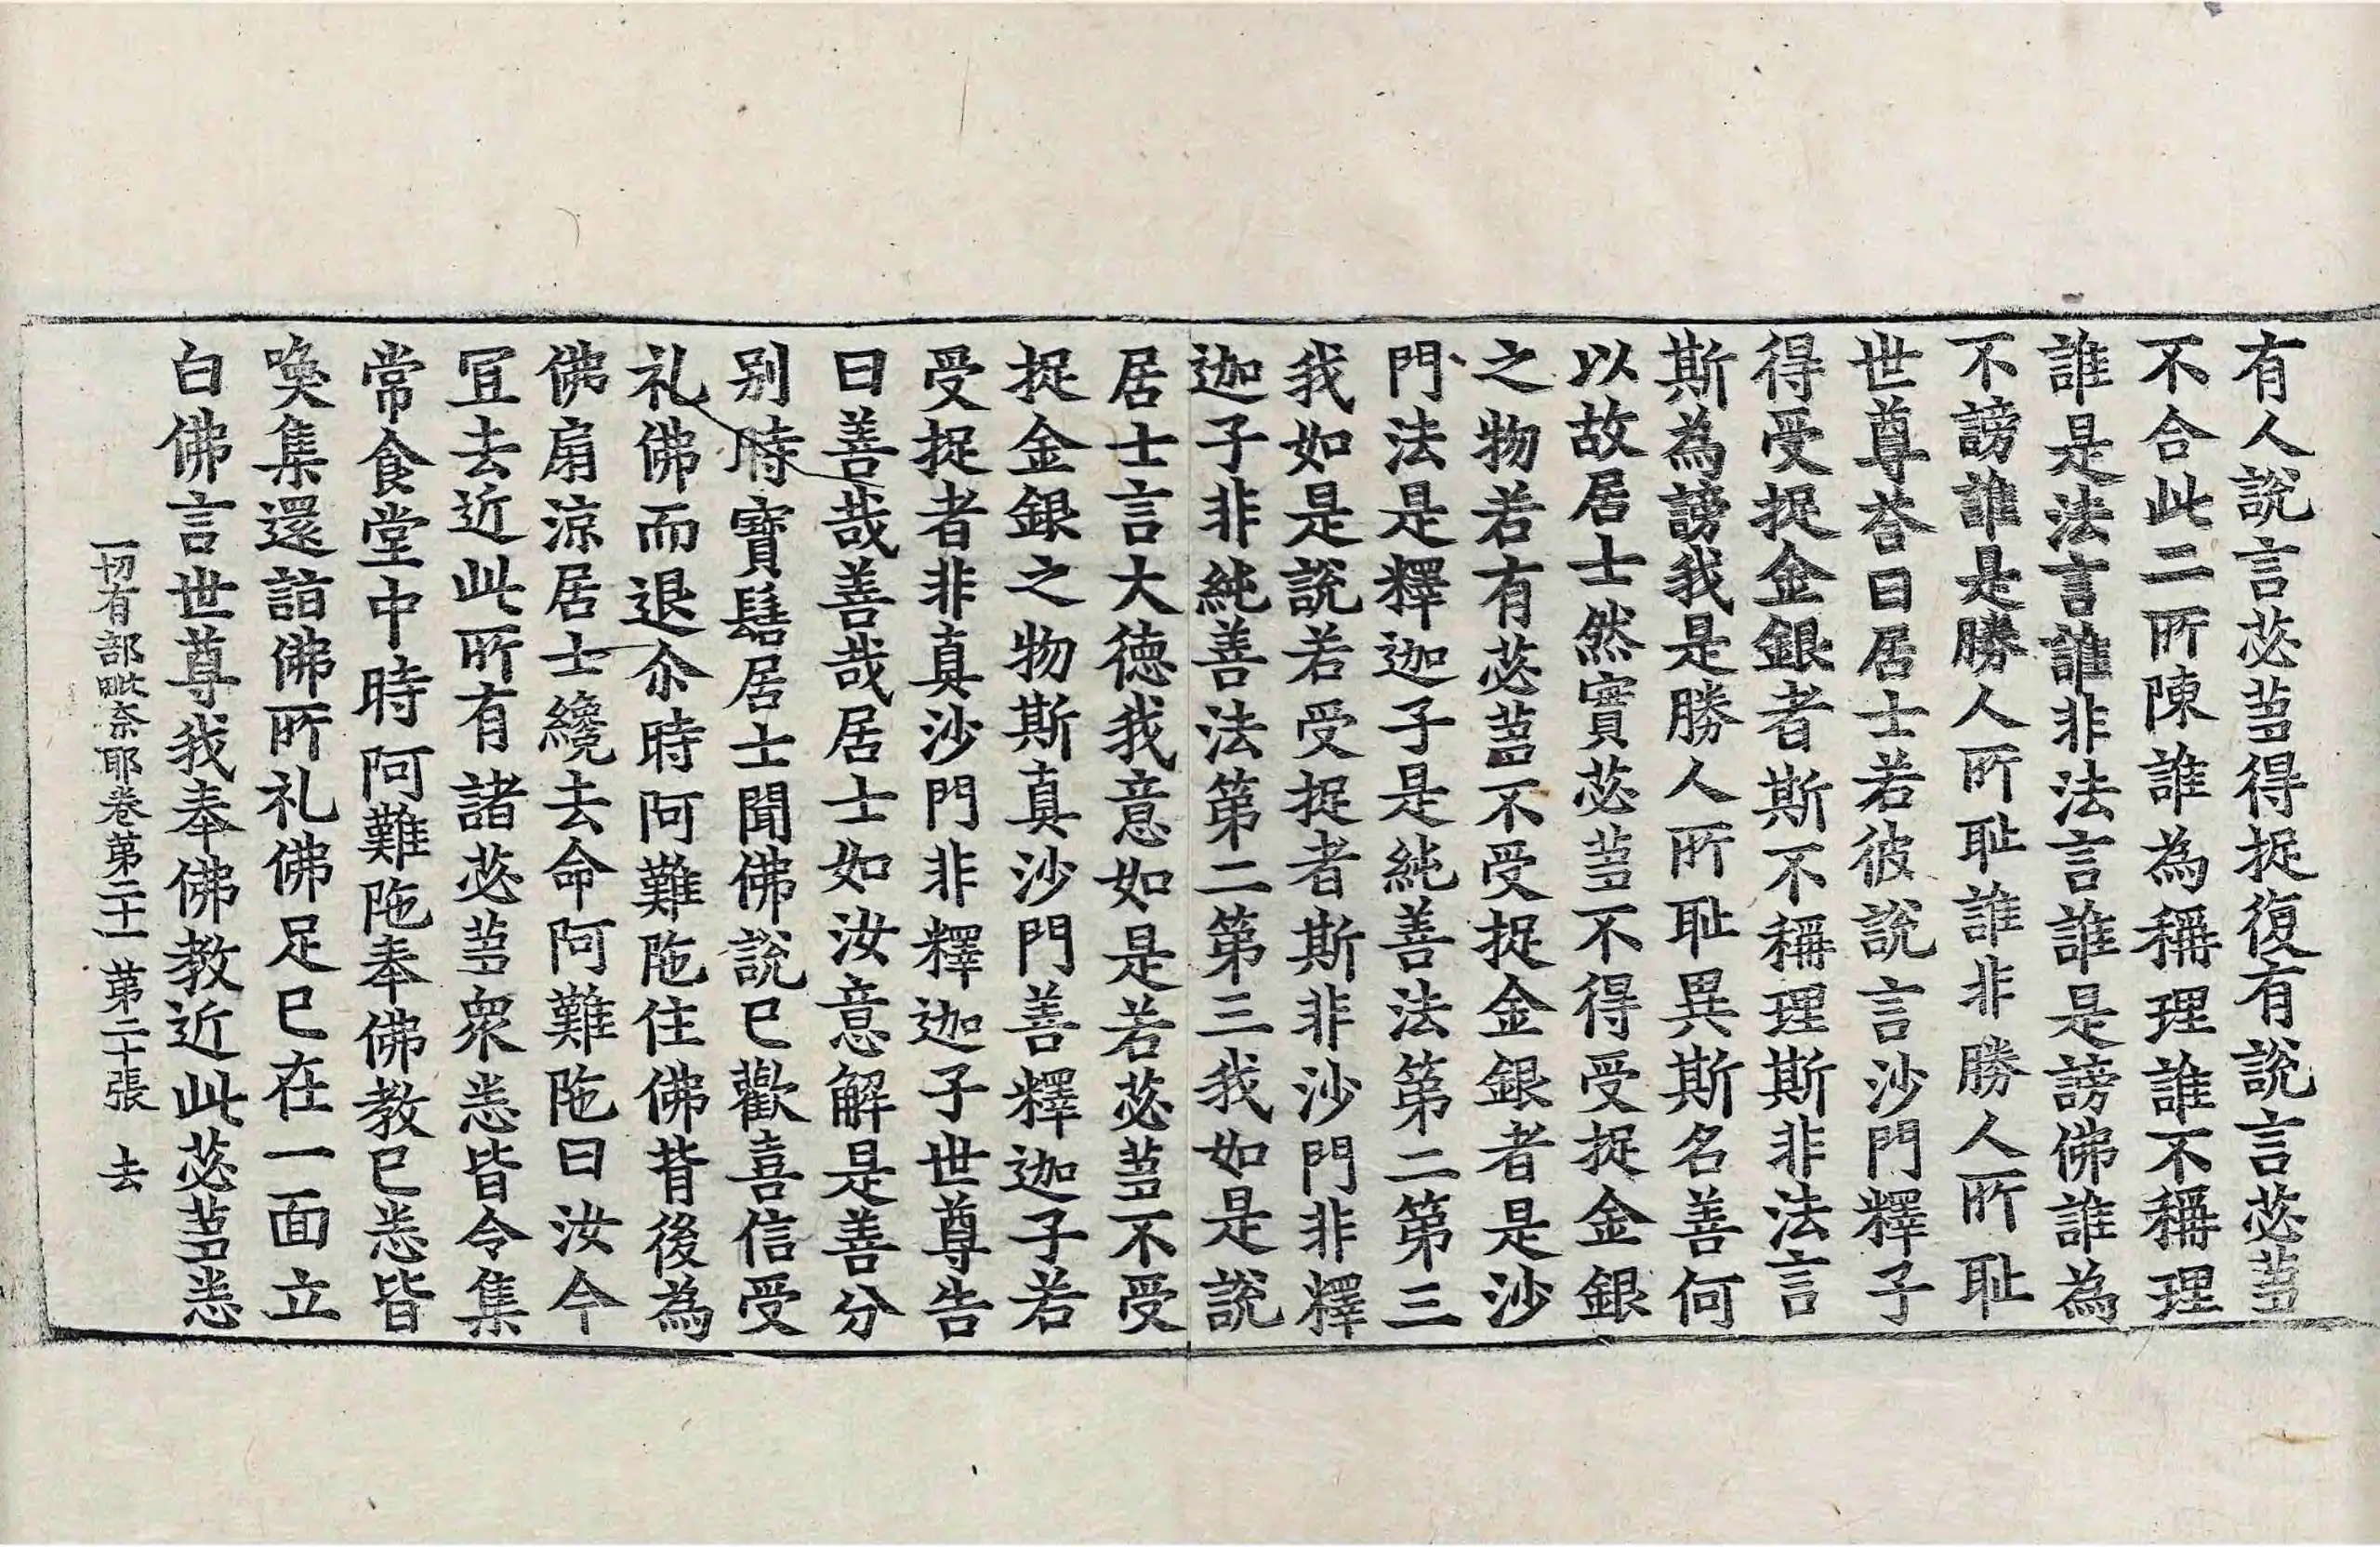 有人說言苾蒭得捉復有說言苾蒭
不合此二所陳誰為稱理誰不稱理
誰是法言誰非法言誰是謗佛誰為
不謗誰是勝人所耻誰非勝人所耻
世尊荅曰居士若彼說言沙門釋子
得受捉金銀者斯不稱理斯非法言
斯為謗我是勝人所耻異斯名善何
以故居士然實苾蒭不得受捉金銀
之物若有苾蒭不受捉金銀者是沙
門法是釋迦子是純善法第二第三
我如是說若受捉者斯非沙門非釋
迦子非純善法第二第三我如是說
居士言大德我意如是若苾蒭不受
捉金銀之物斯真沙門善釋迦子若
受捉者非真沙門非釋迦子世尊告
曰善哉善哉居士如汝意解是善分
别時寶髻居士聞佛說已歡喜信受
礼佛而退尒時阿難陁住佛背後為
佛扇涼居士纔去命阿難陁曰汝今
冝去近此所有諸苾蒭衆悉皆令集
常食堂中時阿難陁奉佛教已悉皆
喚集還詣佛所礼佛足已在一面立
白佛言世尊我奉佛教近此苾蒭悉
一切有部毗奈耶卷第二十一 第二十張 去